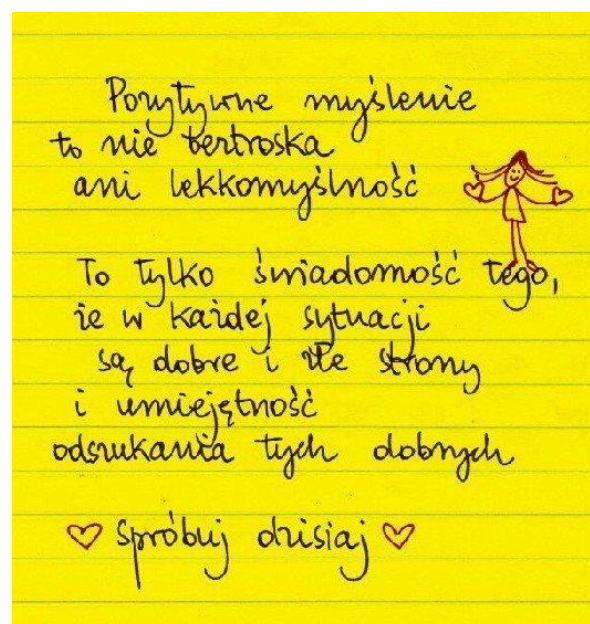 Pozytywne myślenie
to nie beztroska
ani lekkomyślność
To tylko świadomość tego,
że w każdej sytuacji
są dobre i złe strony
i umiejętność
odszukania tych dobrych
spróbuj dzisiaj